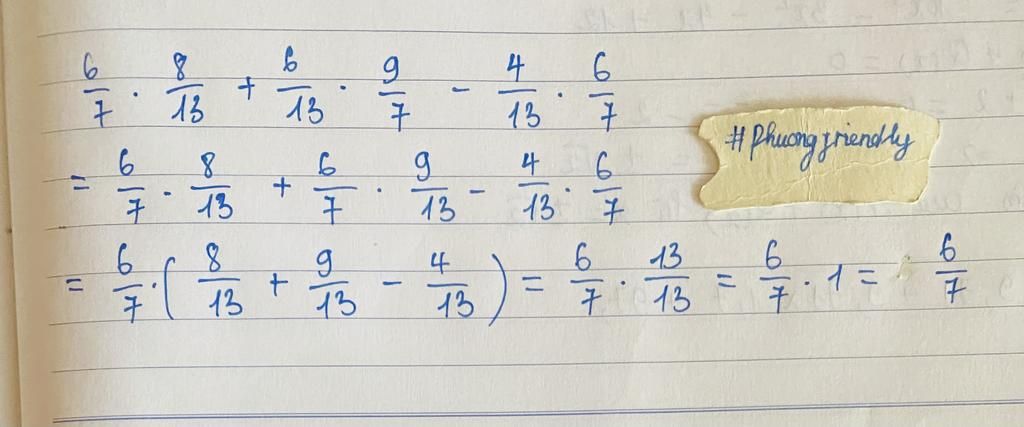 6/7 · 8/13 + 6/13 · 9/7 - 4/13 · 6/7
#Phuongfriendly
= 6/7 · 8/13 + 6/7 · 9/13 - 4/13 · 6/7
= 6/7 · ( 8/13 + 9/13 - 4/13 ) = 6/7 · 13/13 = 6/7 · 1 = 6/7